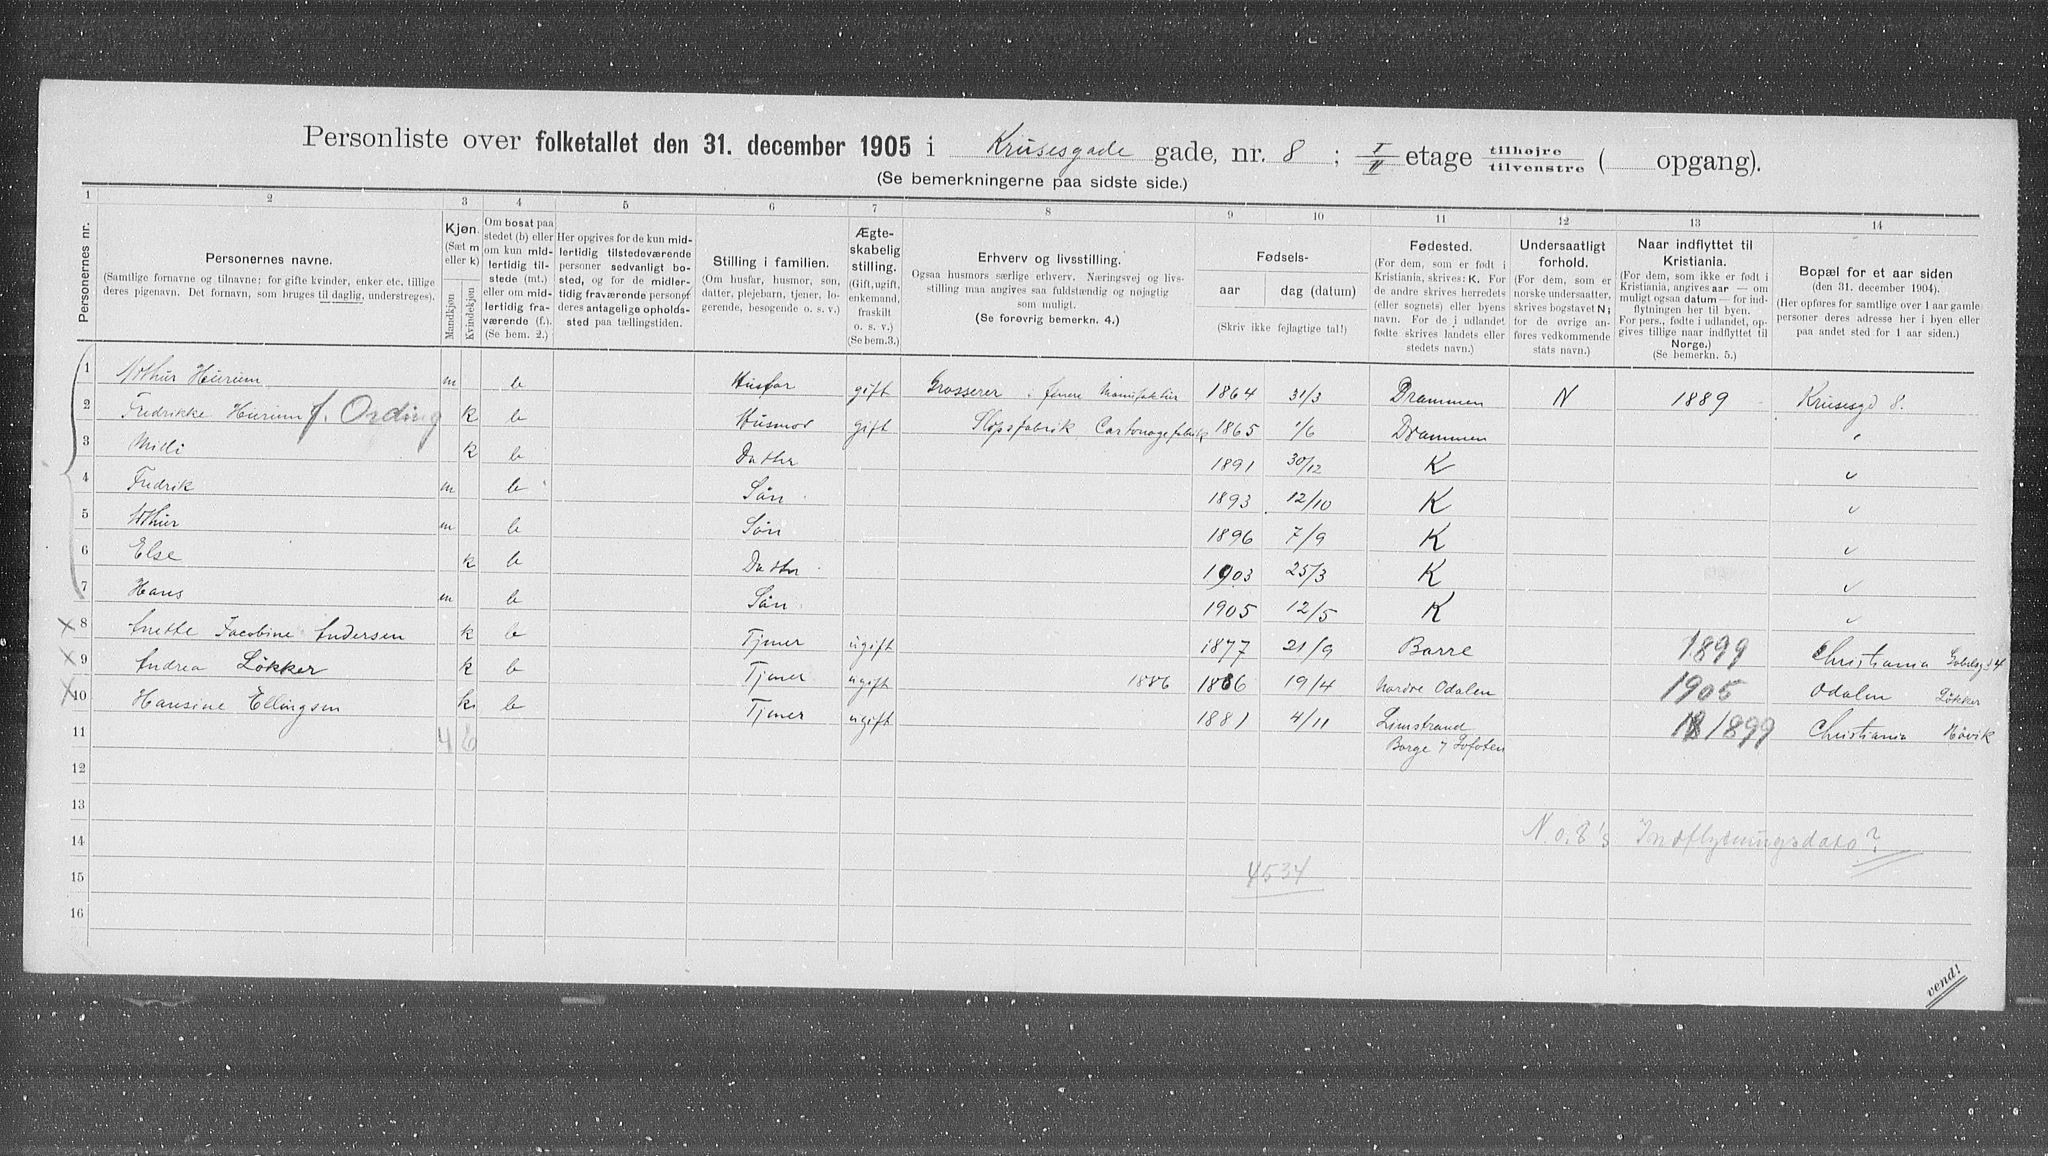 Personliste over folketallet den 31. december 1905 i Krusesgade gade, nr. 8 ; I/II etage tilhøjre tilvenstre ( opgang).
(Se bemerkningerne paa sidste side.)
1 2 3 4 5 6 7 8 9 10 11 12 13 14
Personernes nr.
Personernes navne.
(Samtlige fornavne og tilnavne; for gifte kvinder, enker etc. tillige
deres pigenavn. Det fornavn, som bruges til daglig, understreges).
Kjøn.
(Sæt m
eller k)
Mandkjøn
Kvindekjøn
Om bosat paa
stedet (b) eller
om kun mid-
lertidig til-
stede (mt.)
eller om mid-
lertidig fra-
værende (f.).
(Se bem. 2.)
Her opgives for de kun mid-
lertidig tilstedeværende
personer sedvanlig bo-
sted, og for de midler-
tidig fraværende personer
deres antagelige opholds-
sted paa tællingstiden.
Stilling i familien.
(Om husfar, husmor, søn,
datter, plejebarn, tjener, lo-
gerende, besøgende o. s. v.)
Ægte-
skabelig
stilling.
(Gift, ugift,
enkemand,
fraskilt
o. s. v.)
(Se bem.3.)
Erhverv og livsstilling.
Ogsaa husmors særlige erhverv. Næringsvej og livs-
stilling maa angives saa fuldstændig og nøjagtig
som muligt.
(Se forøvrig bemerkn. 4.)
Fødsels-
aar dag (datum)
(Skriv ikke fejlagtige tal!)
Fødested.
(For dem, som er født i
Kristiania, skrives: K. For
de andre skrives herredets
(eller sognets) eller byens
navn. For de i udlandet
fødte skrives landets eller
stedets navn.)
Undersaatligt
forhold.
(For dem, som er
norske undersaatter,
skrives bogstavet N;
for de øvrige an-
føres vedkommende
stats navn.)
Naar indflyttet til
Kristiania.
(For dem, som ikke er født i
Kristiania, angives aar — om
muligt ogsaa datum — for ind-
flytningen her til byen.
For pers., fødte i udlandet, op-
gives tillige naar indflyttet til
Norge.)
(Se bemerkn. 5.)
Bopæl for et aar siden
(den 31. december 1904).
(Her opføres for samtlige over 1 aar gamle
personer deres adresse her i byen eller
paa andet sted for 1 aar siden.)
1 Arthur Hurum m b Husfar gift Grosserer i finere Manufaktur 1864 31/3 Drammen N 1889 Krusesgd 8.
2 Fredrikke Hurum f. Ording k b Husmor gift Slipsfabrik Cartonagefabrik 1865 1/6 Drammen "
3 Milli k b Datter 1891 30/12 K "
4 Fredrik m b Søn 1893 12/10 K "
5 Arthur m b Søn 1896 7/9 K "
6 Else k b Datter 1903 25/3 K "
7 Hans m b Søn 1905 12/5 K "
x 8 Anette Jacobine Andersen k b Tjener ugift 1877 21/9 Borre 1899 Christiania
x 9 Andrea Løkker k b Tjener ugift 1886 1886 19/4 Nordre Odalen 1905 Odalen Løkker
x 10 Hansine Ellingsen k b Tjener ugift 1881 4/11 Limstrand 1899 Christiania Høvik
11 4 6 Borge i Lofoten
12
13
14 No. 8's Indflytningsdato?
15 4534
16
vend!